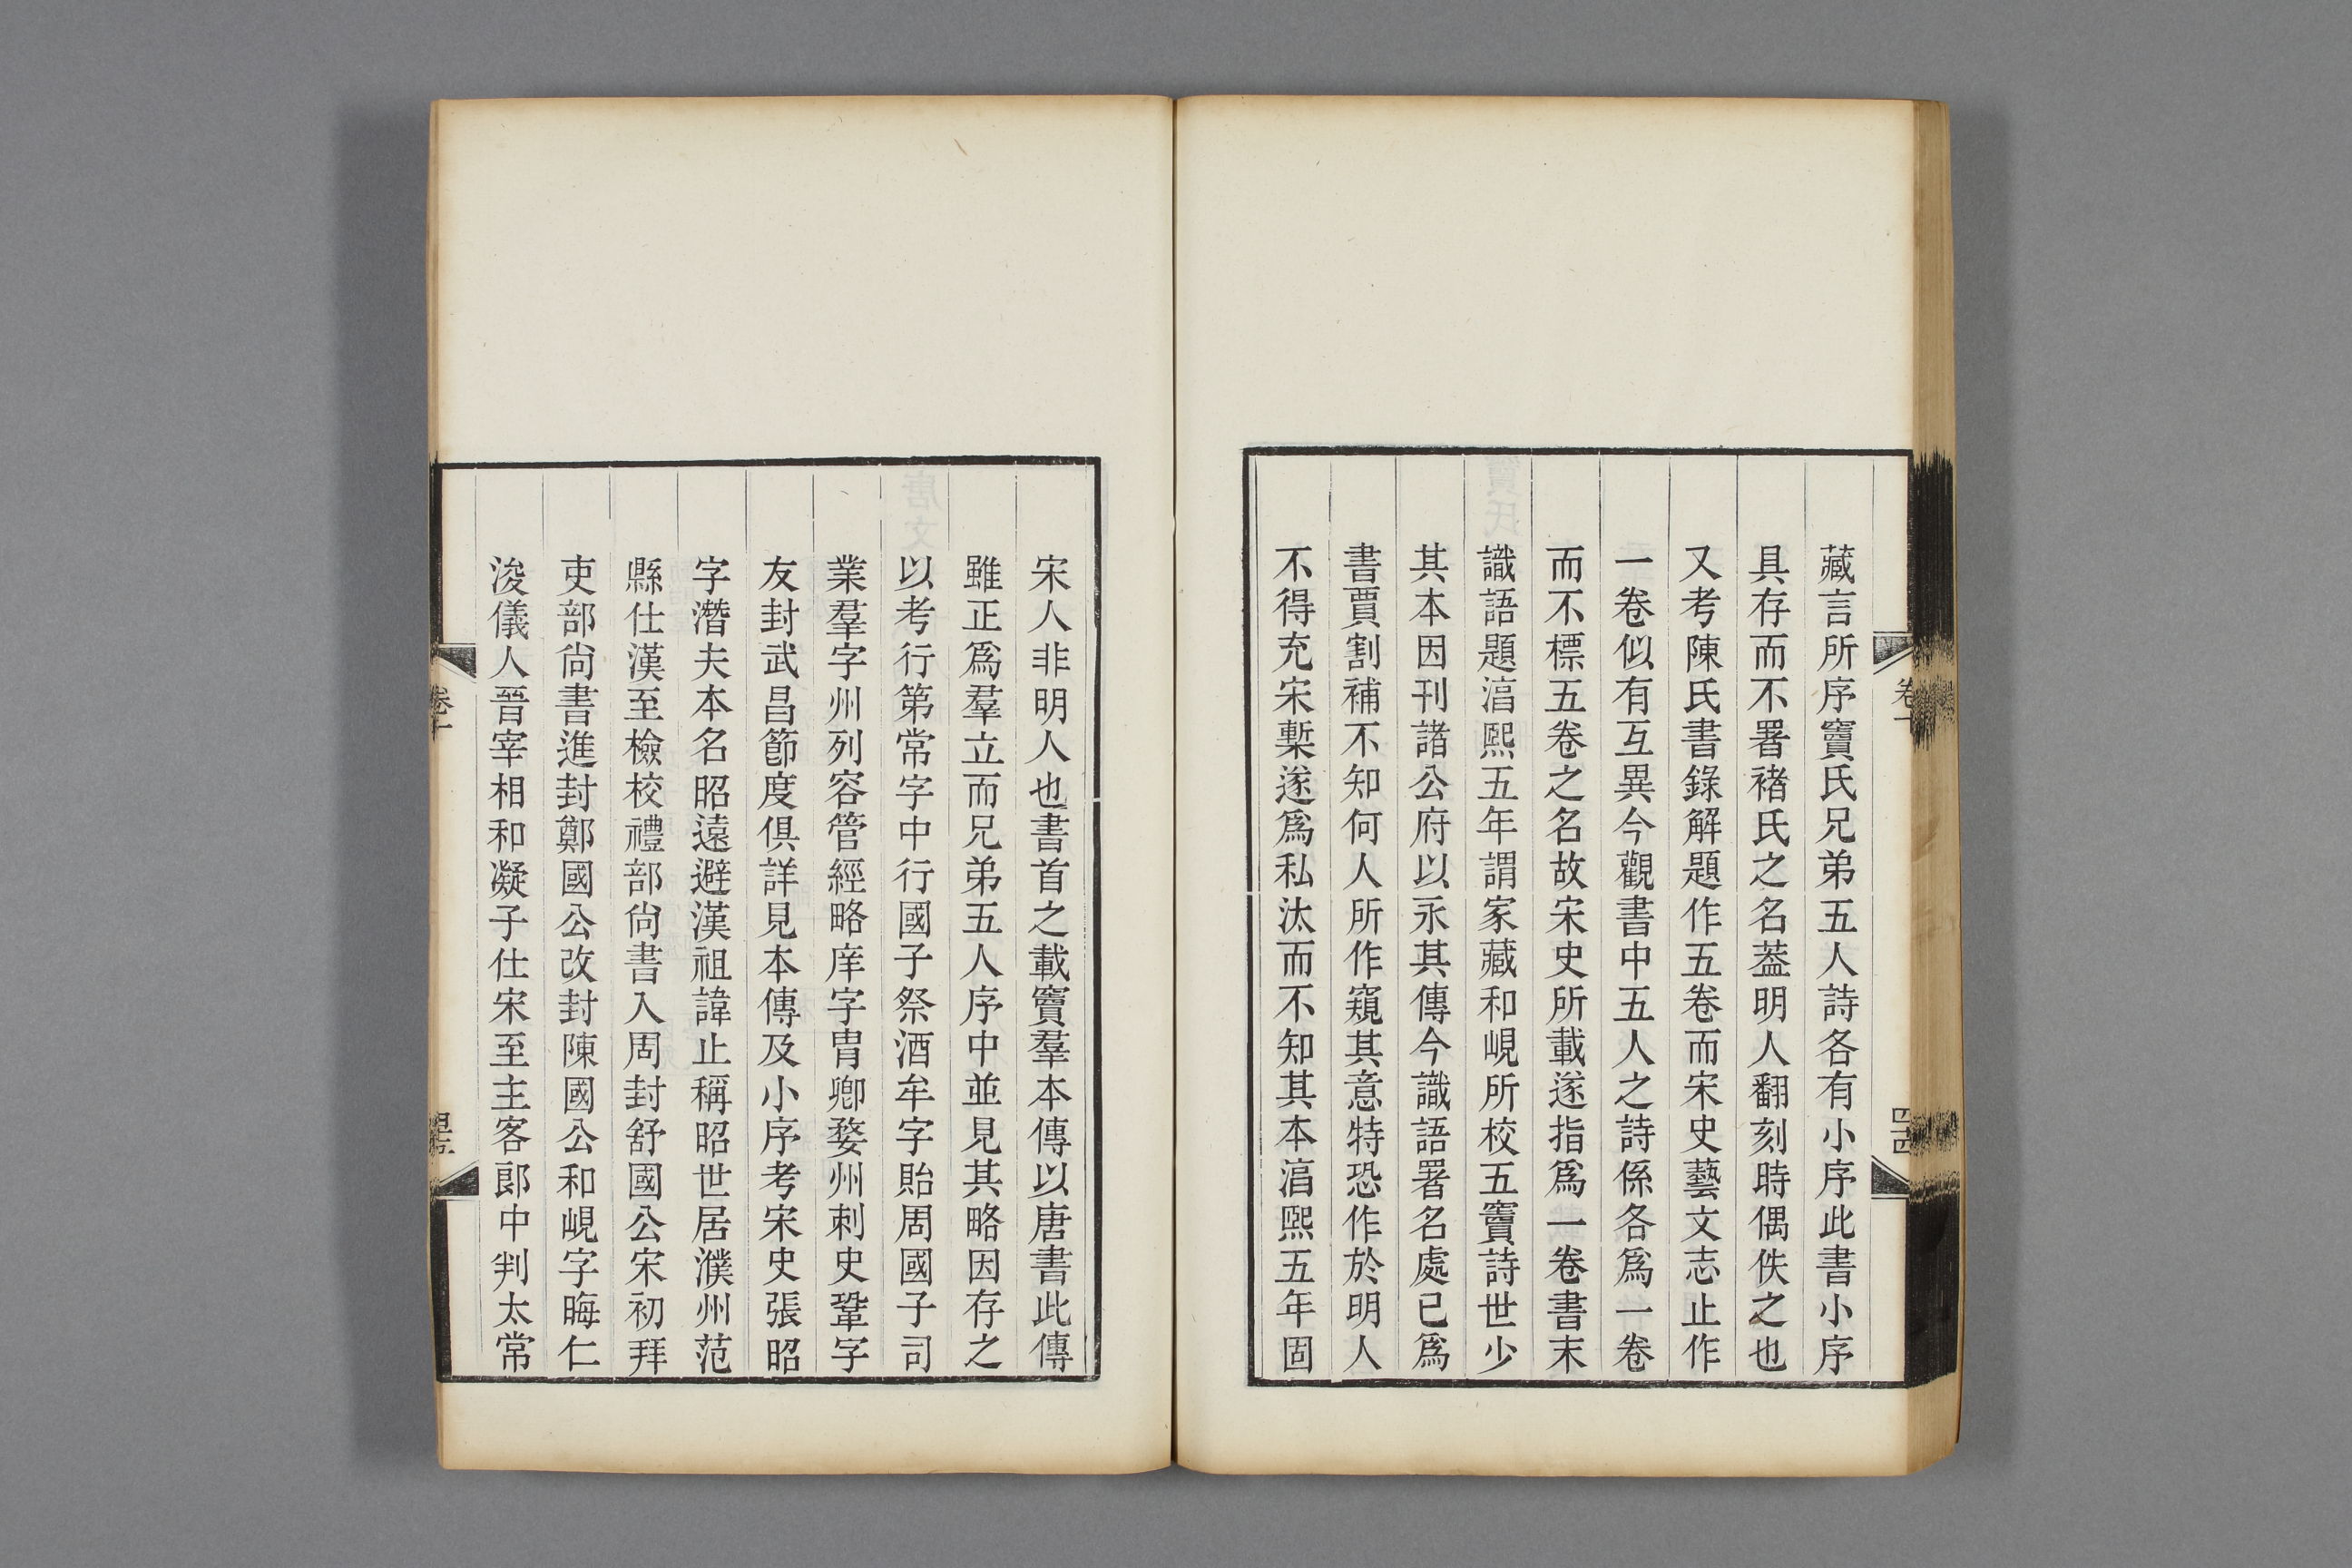 藏言所序竇氏兄弟五人詩各有小序此書小序
具存而不署褚氏之名葢明人翻刻時偶佚之也
又考陳氏書錄解題作五卷而宋史藝文志止作
一卷似有互異今觀書中五人之詩係各爲一卷
而不標五卷之名故宋史所載遂指爲一卷書末
識語題淳熙五年謂家藏和峴所校五竇詩世少
其本因刊諸公府以永其傳今識語署名處已爲
書賈割補不知何人所作窺其意特恐作於明人
不得充宋槧遂爲私汰而不知其本淳熙五年固
卷十
宋人非明人也書首之載竇羣本傳以唐書此傳
雖正爲羣立而兄弟五人序中並見其略因存之
以考行第常字中行國子祭酒牟字貽周國子司
業羣字州列容管經略庠字胄卿婺州刺史鞏字
友封武昌節度俱詳見本傳及小序考宋史張昭
字潛夫本名昭遠避漢祖諱止稱昭世居濮州范
縣仕漢至檢校禮部尙書入周封舒國公宋初拜
吏部尙書進封鄭國公改封陳國公和峴字晦仁
浚儀人晉宰相和凝子仕宋至主客郎中判太常
卷十